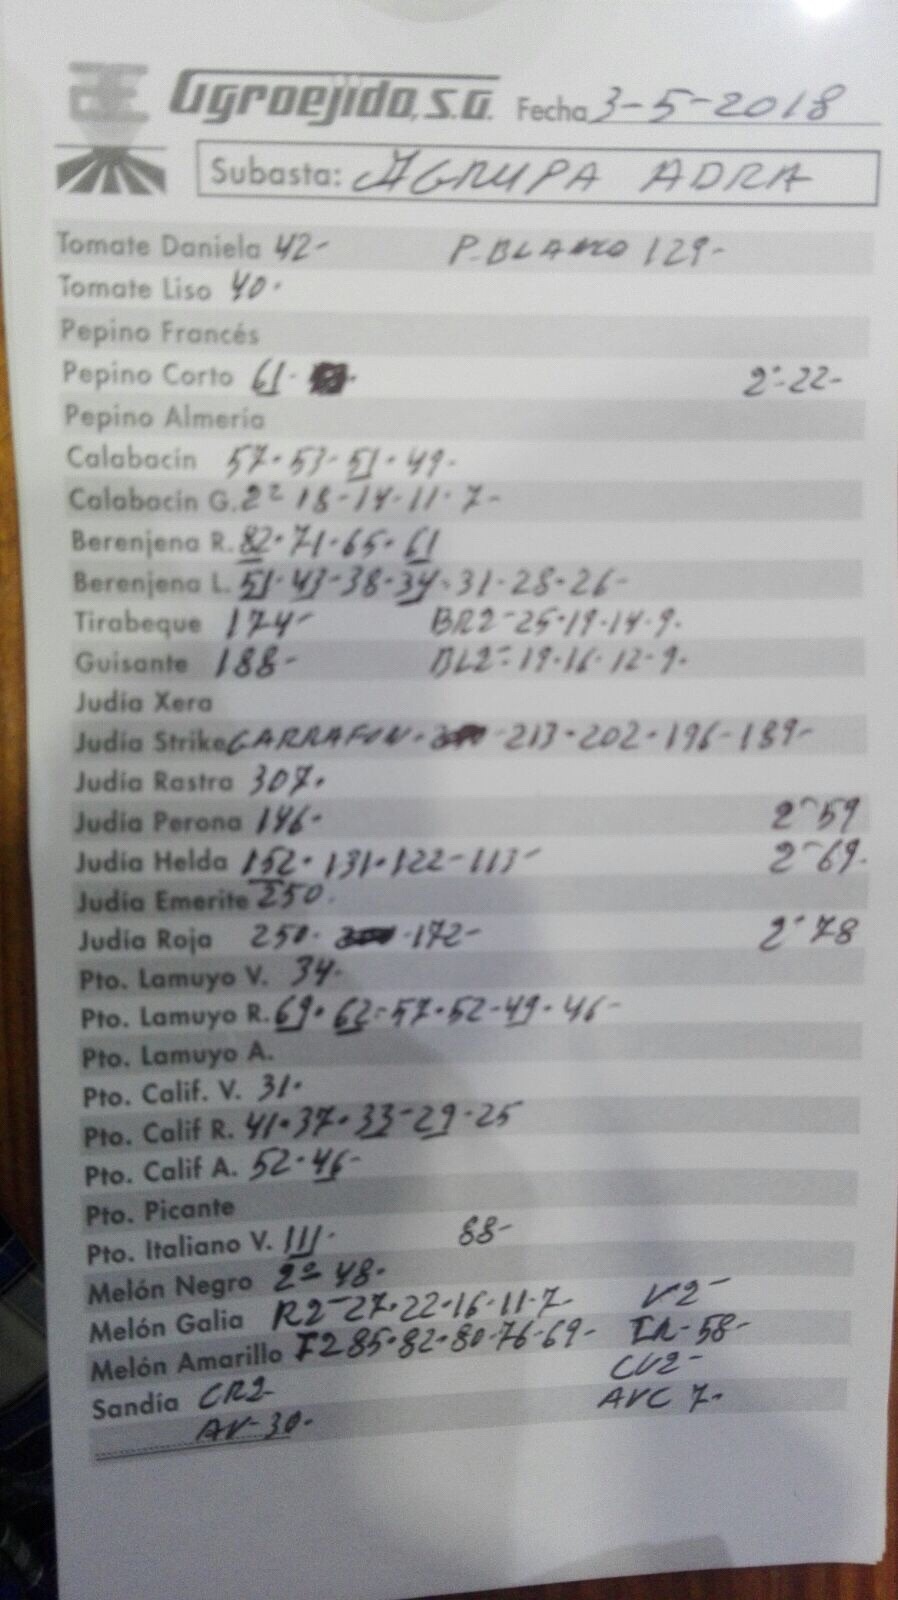 Agroejido, S.A. Fecha 3-5-2018
Subasta: AGRUPA ADRA
Tomate Daniela 42- P.BLANCO 129-
Tomate Liso 40.
Pepino Francés
Pepino Corto 61- 2ª-22-
Pepino Almería
Calabacín 57.53-51.49-
Calabacín G. 2ª 18-14-11.7-
Berenjena R. 82.71.65.61
Berenjena L. 51.43-38.34-31-28-26-
Tirabeque 174- BR2-25.19.14.9.
Guisante 188- BL2-19.16.12-9.
Judía Xera
Judía Strike GARRAFON. -213.202.196-189-
Judía Rastra 307.
Judía Perona 146- 2ª59
Judía Helda 152.131.122-113- 2ª69.
Judía Emerite 250.
Judía Roja 250. .172- 2ª78
Pto. Lamuyo V. 34-
Pto. Lamuyo R. 69.62-57.52-49.46-
Pto. Lamuyo A.
Pto. Calif. V. 31.
Pto. Calif R. 41.37.33-29-25
Pto. Calif A. 52.46-
Pto. Picante
Pto. Italiano V. 111. 88-
Melón Negro 2ª 48.
Melón Galia R2-27.22-16-11-7- V2-
Melón Amarillo I2 85.82.80-76-69- IR-58-
CV2-
Sandía CR2- AVC 7.
AV-30.